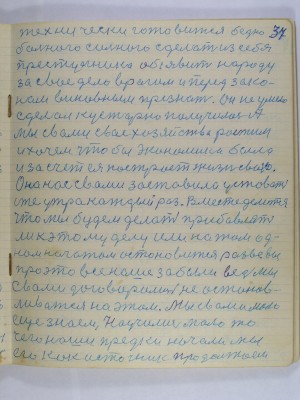 технически готовится бедно 37
больного сильного сделать из себя
преступника объявить народу
за свое дело врагом и перед зако-
ном виновным признать. Он не умно
сделал кустарно получилось А
мы с вами свое хозяйство растим
и хочем чтобы экономика была
и за счет ея построить жизнь свою.
Она нас с вами заставила установить
уже утра каждый раз. Вместе делится
что мы будем делать прибавлять
ли к этому делу или на том од-
ном начатом остановится разве вы
про это все наше забыли ведь мы
с вами договорились не останав-
ливаться на этом. Мы с вами мало
еще знаем, Научились мало то
чего наши предки начали мы
его как источник продолжаем